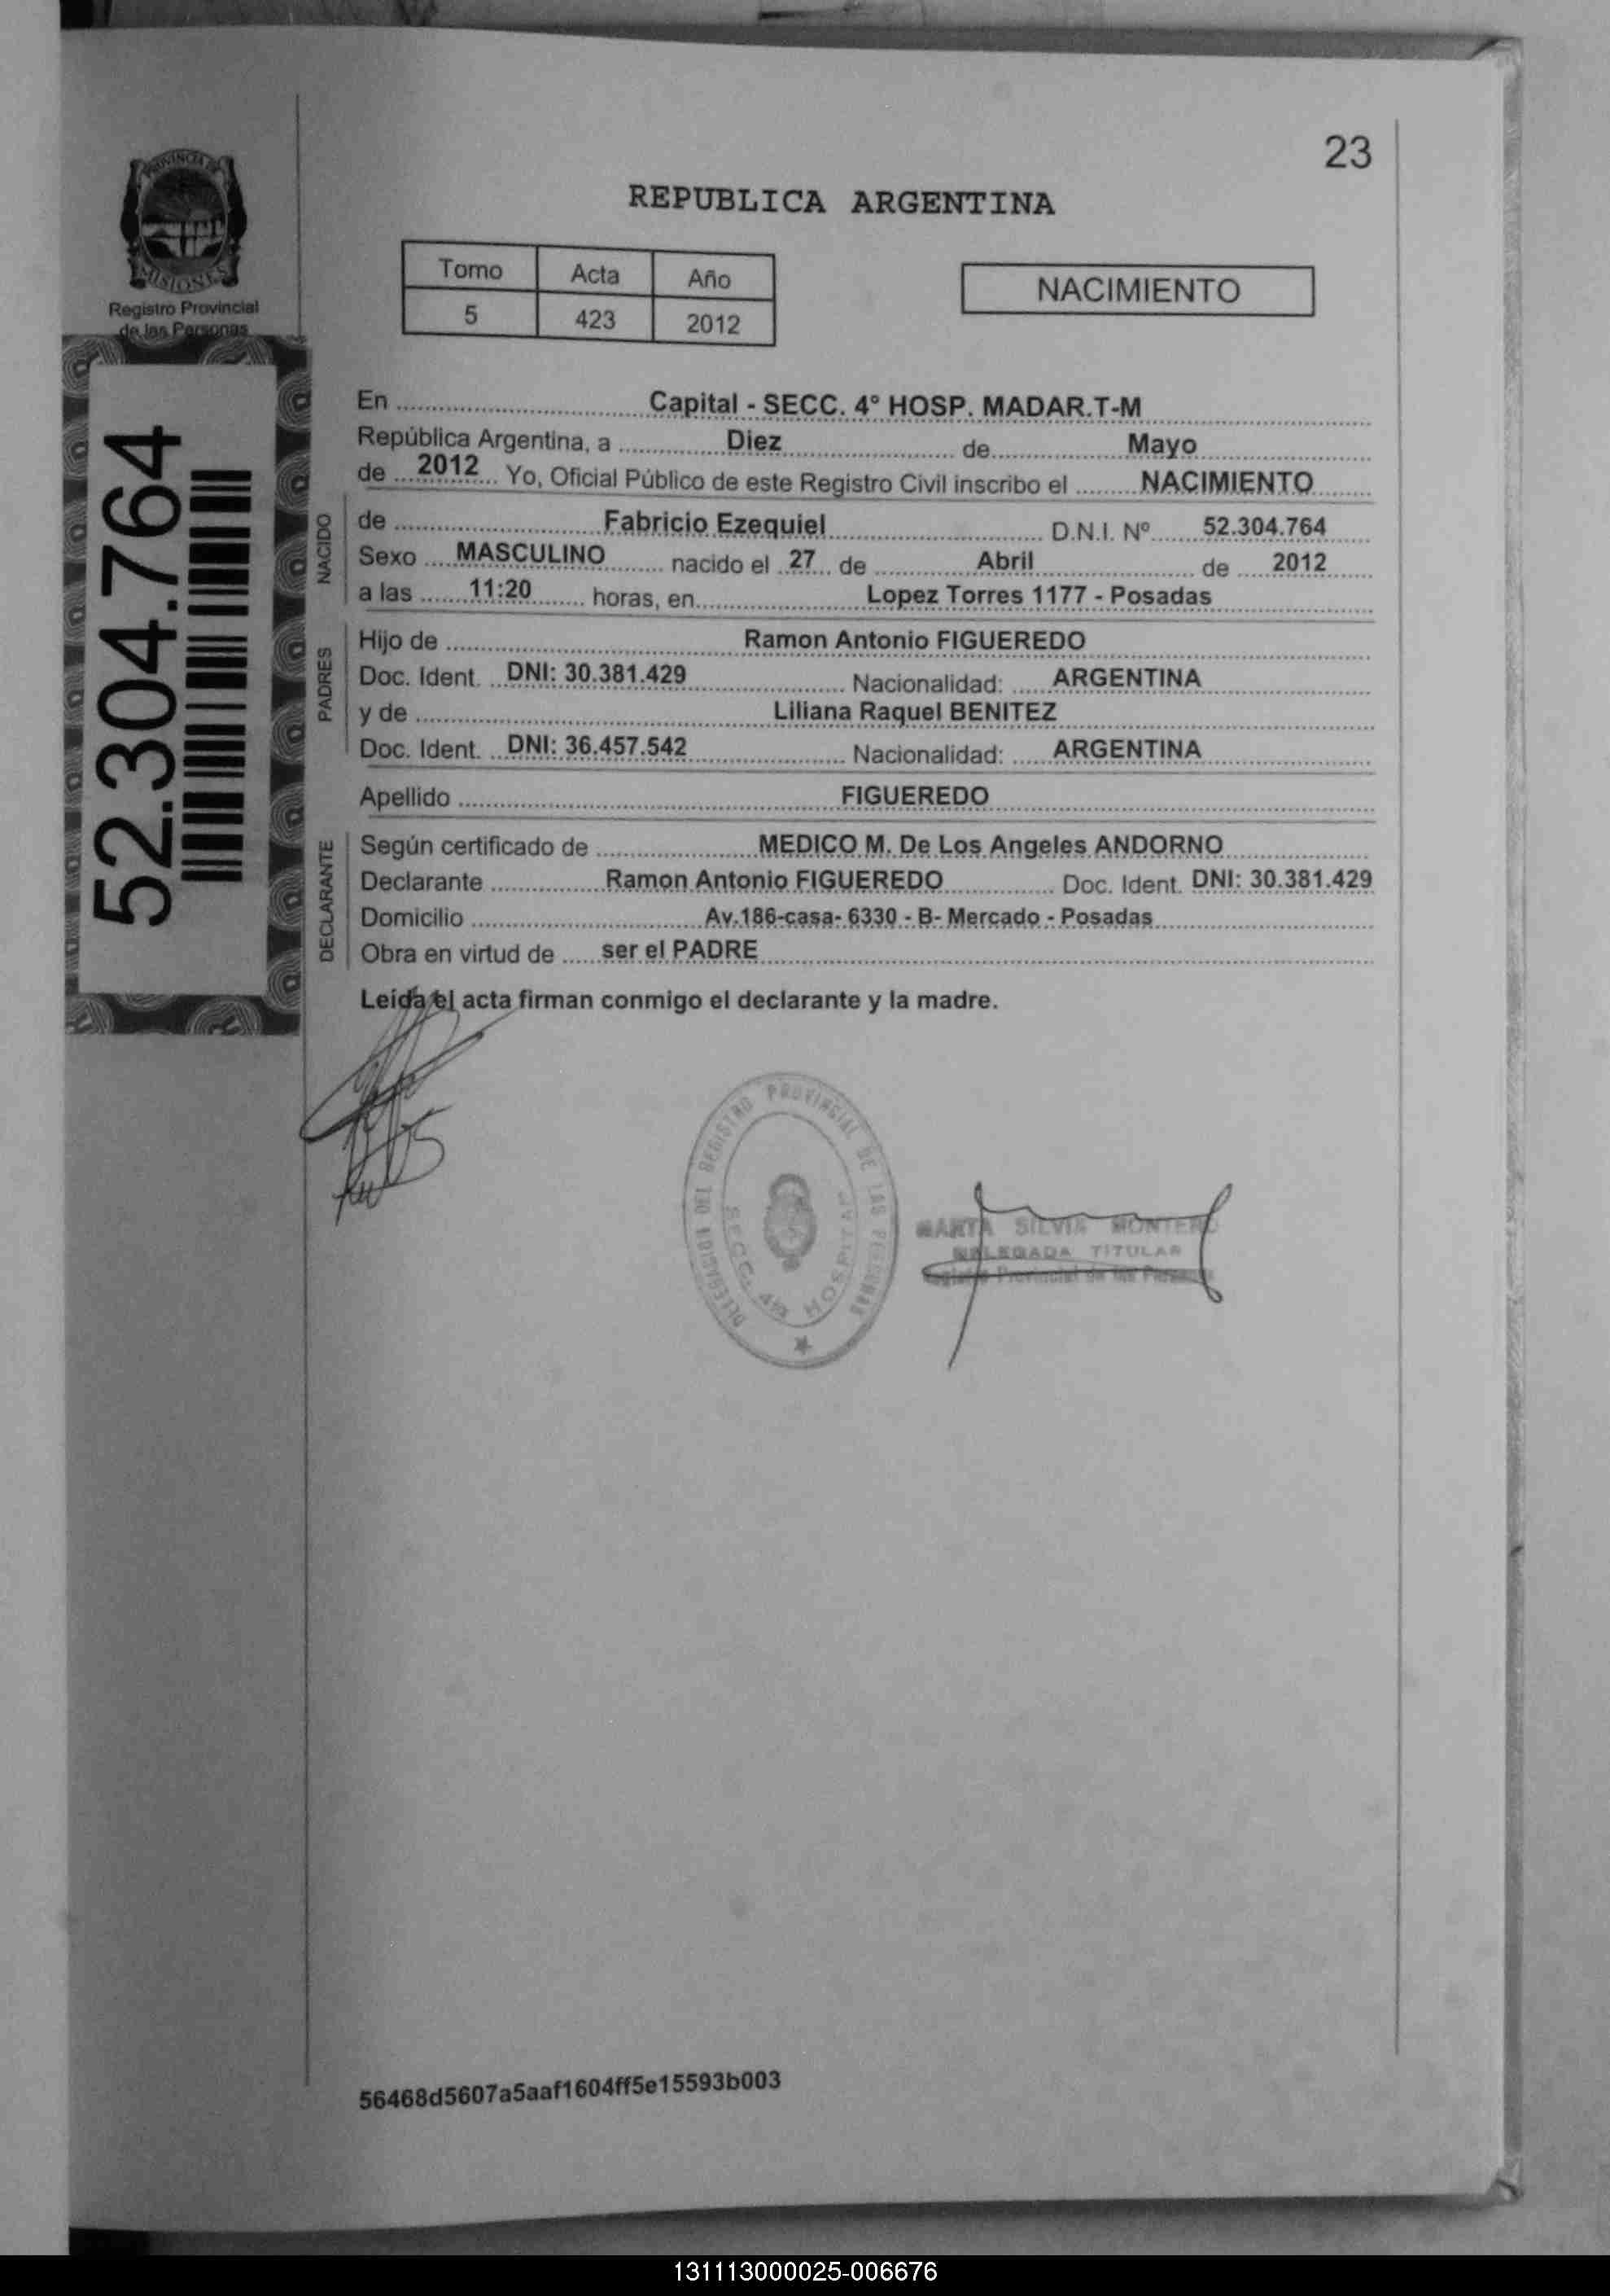 23
PROVINCIA DE
MISIONES
Registro Provincial
de las Personas
REPUBLICA ARGENTINA
Tomo Acta Año
5 423 2012
NACIMIENTO
52.304.764
En Capital - SECC. 4° HOSP. MADAR.T-M
República Argentina, a Diez de Mayo
de 2012 Yo, Oficial Público de este Registro Civil inscribo el NACIMIENTO
NACIDO
de Fabricio Ezequiel D.N.I. Nº 52.304.764
Sexo MASCULINO nacido el 27 de Abril de 2012
a las 11:20 horas, en Lopez Torres 1177 - Posadas
PADRES
Hijo de Ramon Antonio FIGUEREDO
Doc. Ident. DNI: 30.381.429 Nacionalidad: ARGENTINA
y de Liliana Raquel BENITEZ
Doc. Ident. DNI: 36.457.542 Nacionalidad: ARGENTINA
Apellido FIGUEREDO
DECLARANTE
Según certificado de MEDICO M. De Los Angeles ANDORNO
Declarante Ramon Antonio FIGUEREDO Doc. Ident. DNI: 30.381.429
Domicilio Av.186-casa- 6330 - B- Mercado - Posadas
Obra en virtud de ser el PADRE
Leida el acta firman conmigo el declarante y la madre.
DEL REGISTRO PROVINCIAL DE LAS PERSONAS
SECC. 4ta HOSPITAL
MARTA SILVIA MONTERO
DELEGADA TITULAR
Registro Provincial de las Personas
56468d5607a5aaf1604ff5e15593b003
131113000025-006676